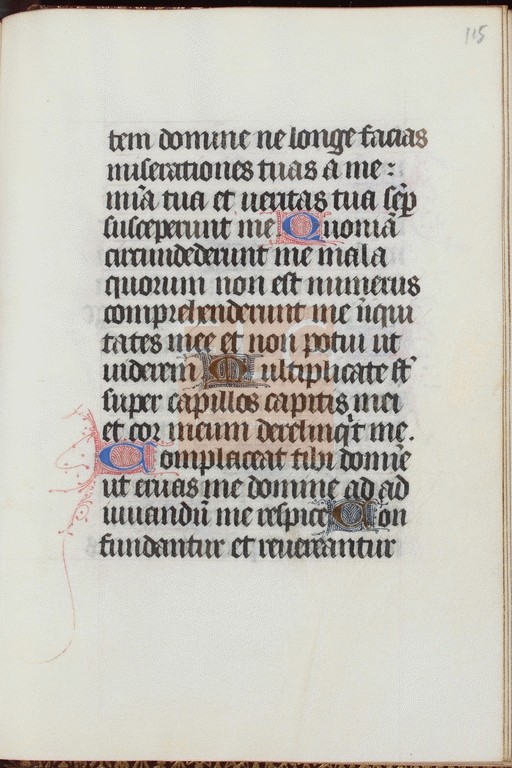 115
tem domine ne longe facias
miserationes tuas a me:
mia tua et ueritas tua sep
susceperunt me Quoniā
circundederunt me mala
quorum non est numerus
comprehenderunt me iniqui
tates mee et non potui ut
uiderem Multiplicate st
super capillos capitis mei
et cor meum dereliqt me.
Complaceat tibi domīe
ut eruas me domine ad ad
iuuandū me respice Con
fundantur et reuereantur